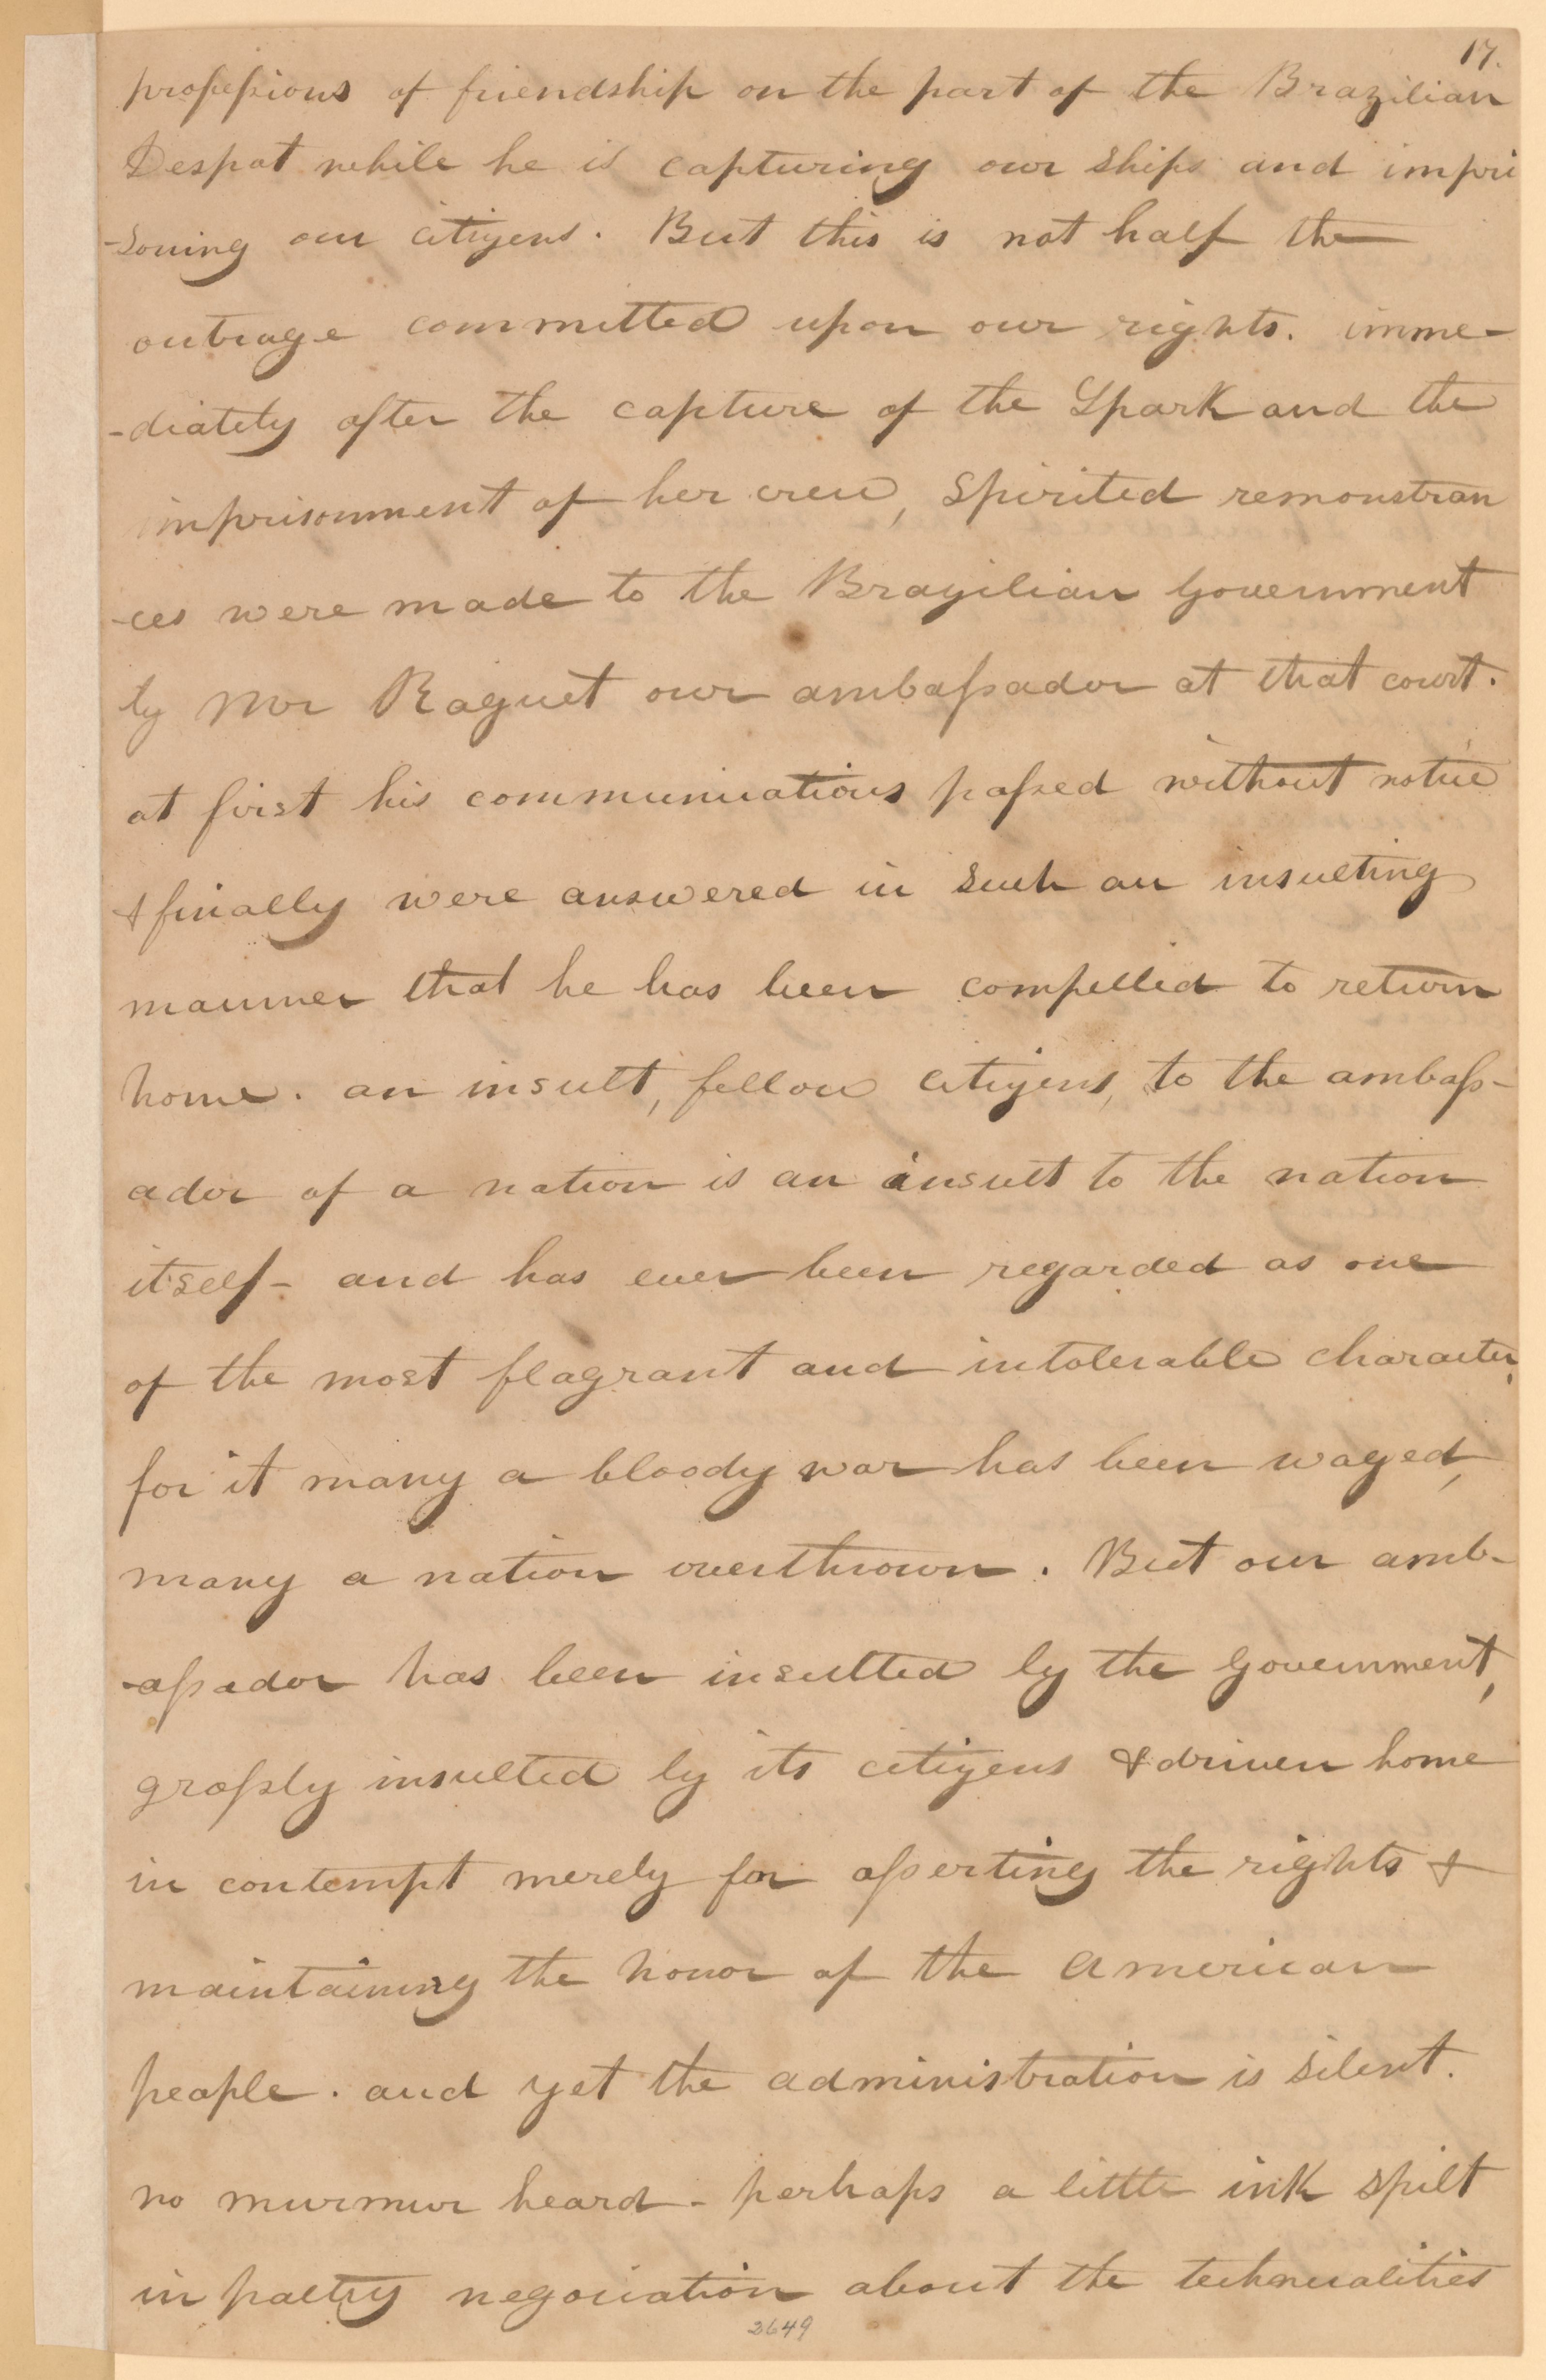 17.
professions of friendship on the part of the Brazilian
Despot while he is capturing our ships and impri
-soning our citizens. But this is not half the
outrage committed upon our rights. imme-
-diately after the capture of the Spark and the
imprisonment of her crew, spirited remonstran
-ces were made to the Brazilian Government
by Mr Raguet our ambassador at that court.
at first his communications passed without notice
& finally were answered in such an insulting
manner that he has been compelled to return
home. an insult, fellow citizens, to the ambass-
ador of a nation is an insult to the nation
itself - and has ever been regarded as one
of the most flagrant and intolerable character,
for it many a bloody war has been waged,
many a nation overthrown. But our amb-
-assador has been insulted by the Government,
grossly insulted by its citizens & driven home
in contempt merely for asserting the rights &
maintaining the honor of the American
people. and yet the administration is silent.
no murmur heard - perhaps a little ink spilt
in paltry negociation about the technicalities
2649